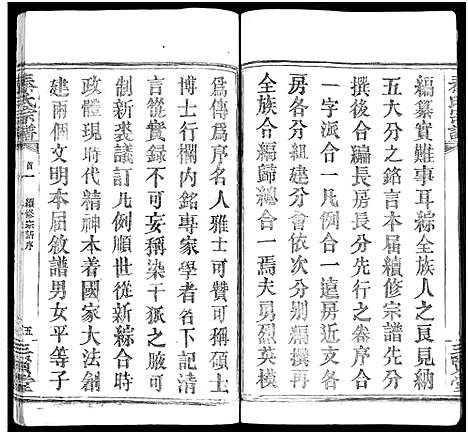 編纂實難車耳綜全族人之良見納
五大分之銘言本届續修宗譜先分
撰後合編長房長分先行之卷序合
一字派合一凡例合一遠房近支各
房各分組建分會依次分別編撰
全族合編歸總合一焉夫勇烈英模
為傳為序名人雅士可贊可稱碩士
博士行欄内銘專家學者名下記清
言嵸實録不可妄稱染千狐之腋可
制新裘議訂凡例順世從新綜合時
政體現時代精神本着國家大法創
建兩個文明本屆敘譜男女平等子
秦氏宗譜
首一
續修宗譜序
五
三賢堂